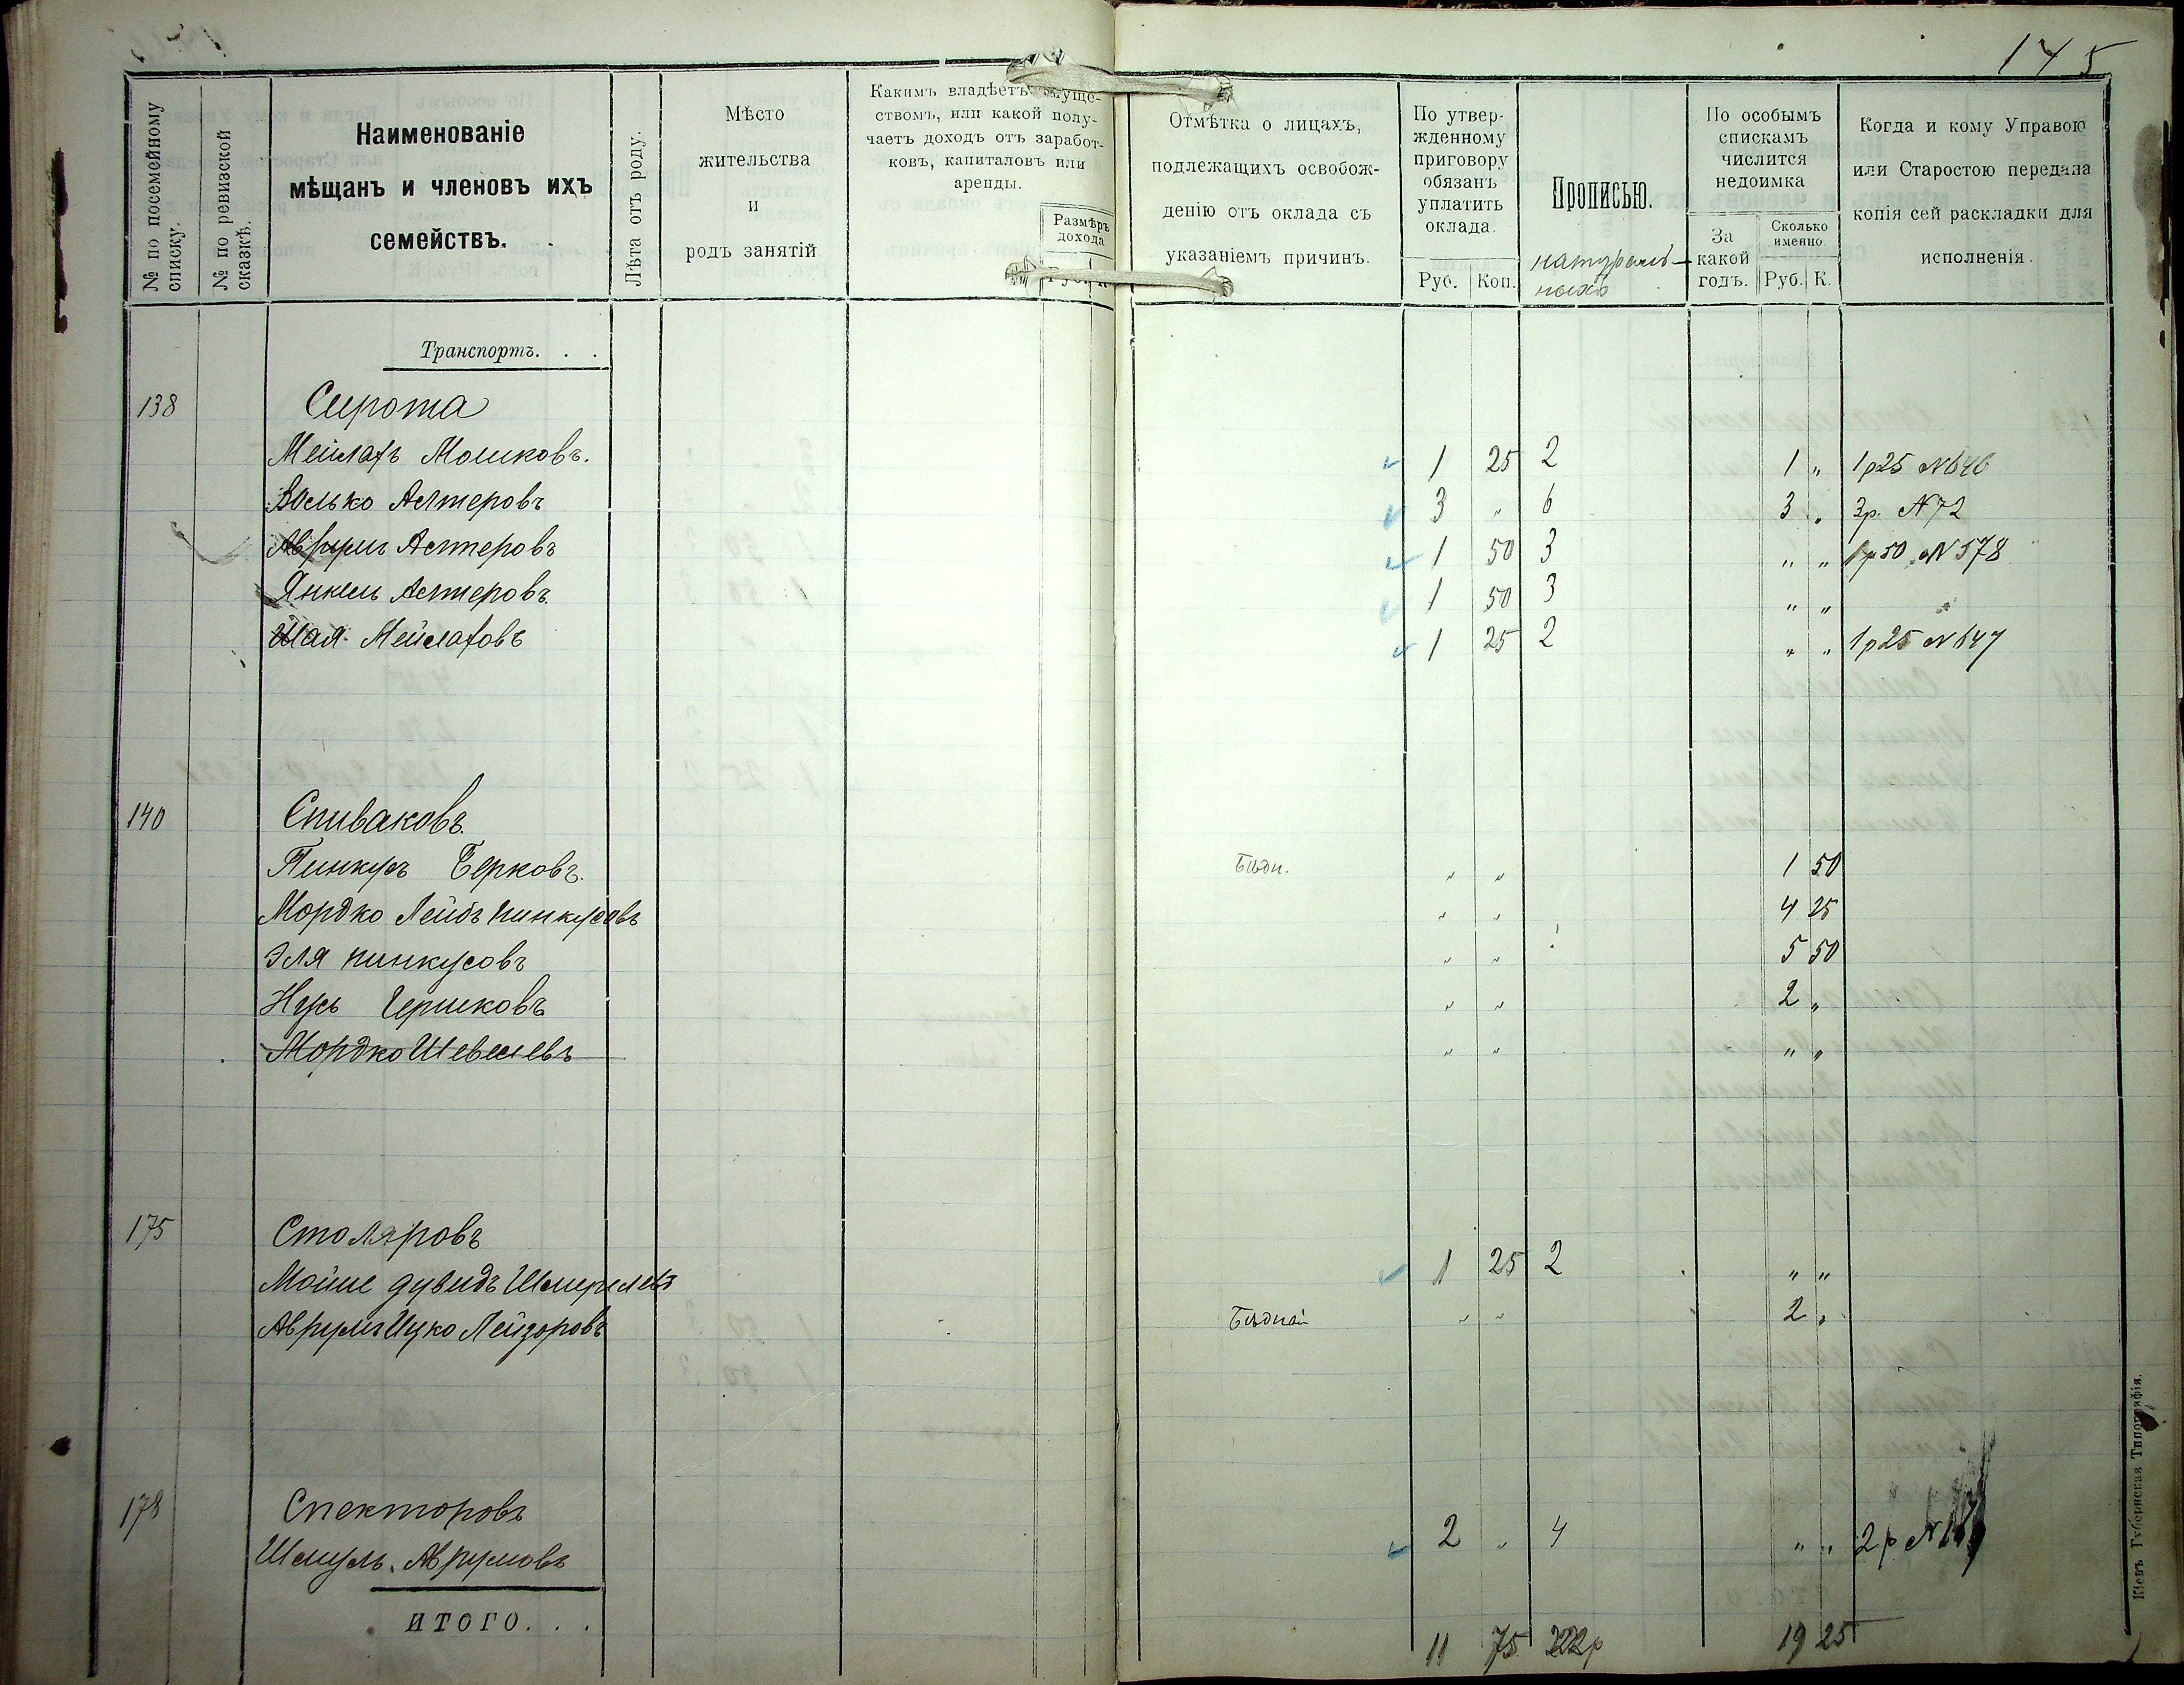 145
№ по посемейному списку.
№ по ревизской сказкѣ.
Наименованіе
мѣщанъ и членовъ ихъ
семействъ.
Лѣта отъ роду.
Мѣсто
жительства
и
родъ занятій
Какимъ владѣетъ имуще-
ствомъ, или какой полу-
чаетъ доходъ отъ заработ-
ковъ, капиталовъ или
аренды.
Размѣръ
дохода
Отмѣтка о лицахъ,
подлежащихъ освобож-
денію отъ оклада съ
указаніемъ причинъ.
По утвер-
жденному
приговору
обязанъ
уплатить
оклада.
Руб. Коп.
Прописью.
натураль-
ныхъ
По особымъ
спискамъ
числится
недоимка
За
какой
годъ.
Сколько
именно.
Руб. К.
Когда и кому Управою
или Старостою передана
копія сей раскладки для
исполненія.
Транспортъ. . .
138 Сирота
Мейлахъ Мошковъ. 1 25 2 1 " 1р25 №646
Волько Алтеровъ 3 " 6 3 " 3р. №72
Аврумъ Алтеровъ 1 50 3 " " 1р50 №578
Янкель Алтеровъ 1 50 3 " "
Шая Мейлаховъ 1 25 2 " " 1р25 №647
140 Спиваковъ.
Пинкусъ Берковъ. Бѣдн. " " 1 50
Мордко Лейбъ Пинкусовъ " " 4 25
Эля Пинкусовъ " " 5 50
Нусь Гершковъ " " 2 "
Мордко Шевелевъ " " " "
175 Столяровъ
Мойше Дувидъ Шмерелевъ 1 25 2 " "
Аврумъ Ицко Лейзоровъ Бѣдный " " 2 "
178 Спекторовъ
Шмуль Аврумовъ 2 " 4 " " 2р №
ИТОГО. . . 11 75 22р 19 25
Кіевъ Губернская Типографія.